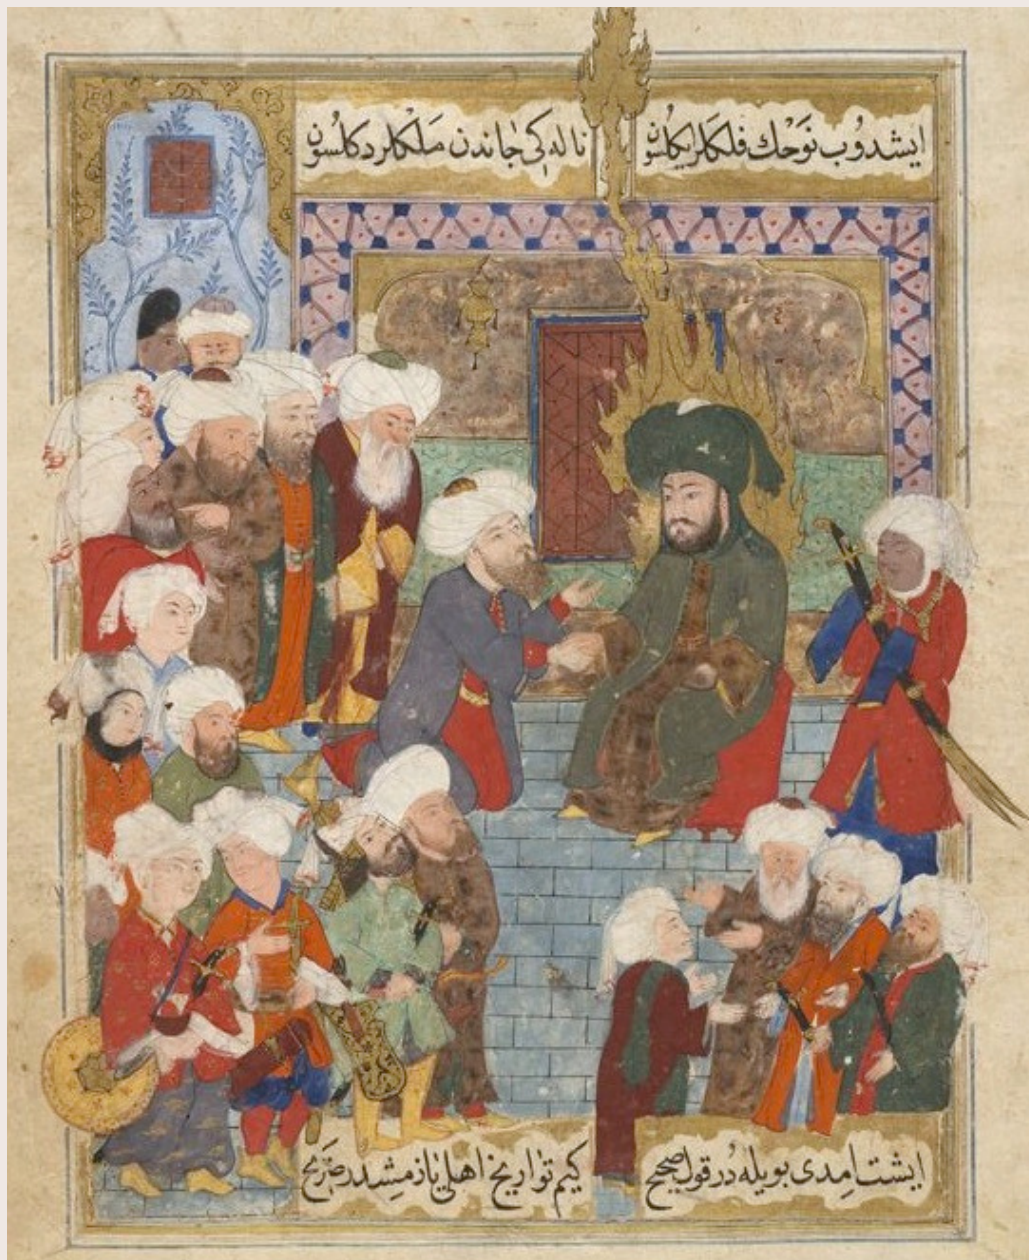 ایشدوب نَوْحك فلكلر ایكلسون ناله كی جاندن ملكلر دكلسون
ایشت اِمدی بویله دُر قول صحیح كیم تواریخ اهلی یازمشدر صَریح